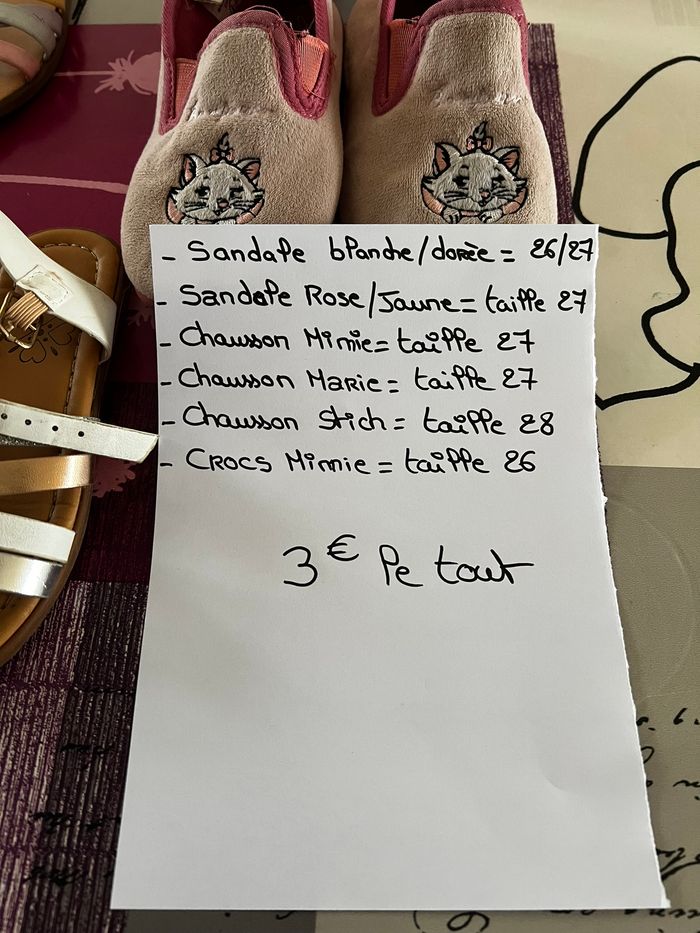 - Sandale blanche/dorée = 26/27
- Sandale Rose/Jaune = taille 27
- Chausson Minnie = taille 27
- Chausson Marie = taille 27
- Chausson Stich = taille 28
- CROCS Minnie = taille 26
3€ le tout